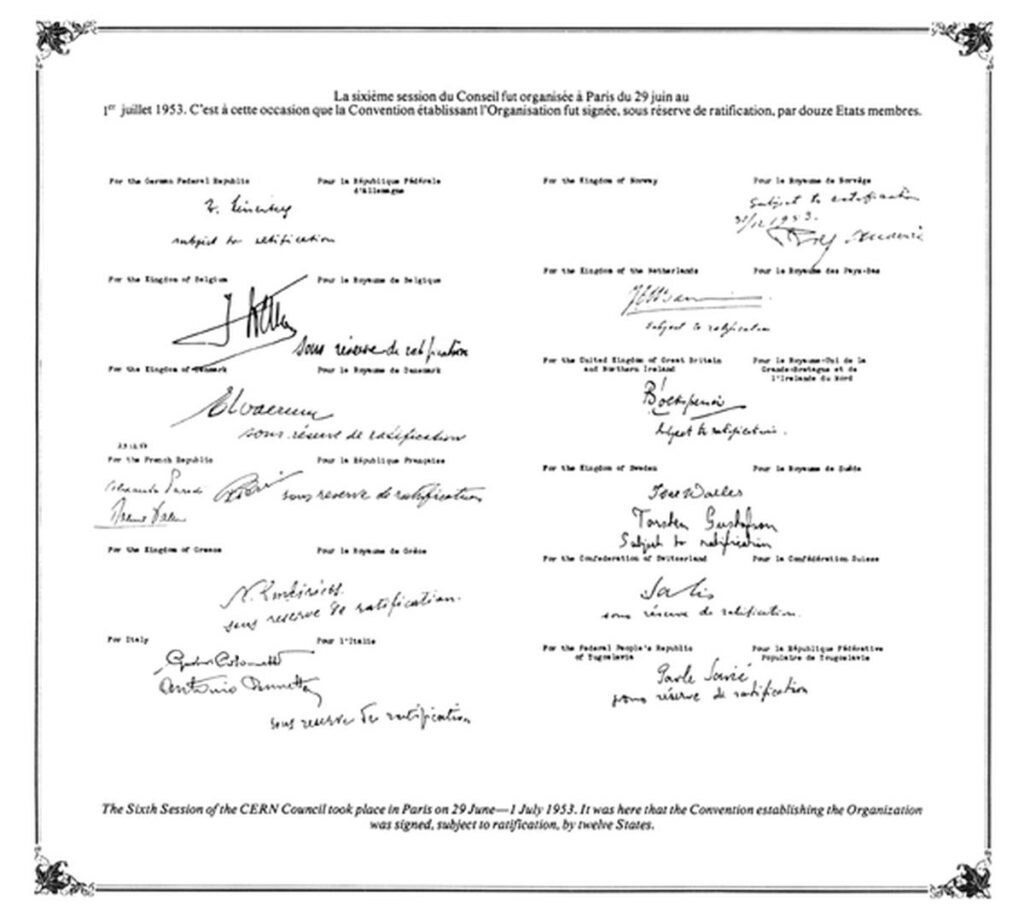 La sixième session du Conseil fut organisée à Paris du 29 juin au
1er juillet 1953. C'est à cette occasion que la Convention établissant l'Organisation fut signée, sous réserve de ratification, par douze Etats membres.
For the German Federal Republic
Pour la République Fédérale
d'Allemagne
subject to ratification
For the Kingdom of Belgium
Pour le Royaume de Belgique
sous réserve de ratification
For the Kingdom of Denmark
Pour le Royaume de Danemark
sous réserve de ratification
For the French Republic
Pour la République Française
sous reserve de ratification
For the Kingdom of Greece
Pour le Royaume de Grèce
sous reserve de ratification.
For Italy
Pour l'Italie
Antonio
sous reserve de ratification
For the Kingdom of Norway
Pour le Royaume de Norvège
Subject to ratification
For the Kingdom of the Netherlands
Pour le Royaume des Pays-Bas
subject to ratification
For the United Kingdom of Great Britain
and Northern Ireland
Pour le Royaume-Uni de la
Grande-Bretagne et de
l'Irelande du Nord
Subject to ratification.
For the Kingdom of Sweden
Pour le Royaume de Suède
Torsten Gustafson
Subject to ratification
For the Confederation of Switzerland
Pour la Confédération Suisse
Salis
sous réserve de ratification.
For the Federal People's Republic
of Yugoslavia
Pour la République Fédérative
Populaire de Yougoslavie
Pavle Savić
sous réserve de ratification
The Sixth Session of the CERN Council took place in Paris on 29 June—1 July 1953. It was here that the Convention establishing the Organization
was signed, subject to ratification, by twelve States.